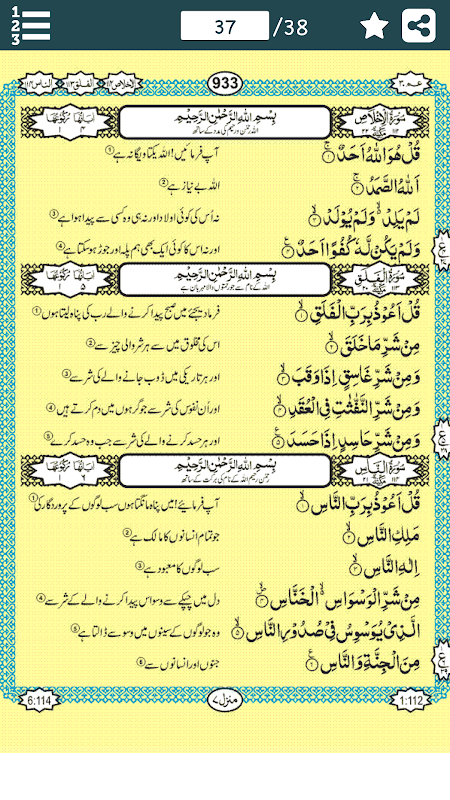 1
2
3
37 /38
عمّ ۳۰
933
الاخلاص ۱۱۲ الفلق ۱۱۳ الناس ۱۱۴
سُوْرَةُ الْاِخْلَاصِ
بِسْمِ اللّٰهِ الرَّحْمٰنِ الرَّحِيْمِ
قُلْ هُوَ اللّٰهُ اَحَدٌ ۱
آپ فرمائیں! اللہ یکتا و یگانہ ہے ۱
اَللّٰهُ الصَّمَدُ ۲
اللہ بے نیاز ہے ۲
لَمْ يَلِدْ وَلَمْ يُوْلَدْ ۳
نہ اُس کی کوئی اولاد اور نہ ہی وہ کسی سے پیدا ہوا ہے ۳
وَلَمْ يَكُنْ لَّهٗ كُفُوًا اَحَدٌ ۴
اور نہ اس کا کوئی ایک بھی ہم پلہ اور جوڑ ہو سکتا ہے ۴
سُوْرَةُ الْفَلَقِ
بِسْمِ اللّٰهِ الرَّحْمٰنِ الرَّحِيْمِ
قُلْ اَعُوْذُ بِرَبِّ الْفَلَقِ ۱
فرما دیجئے میں صبح پیدا کرنے والے رب کی پناہ لیتا ہوں ۱
مِنْ شَرِّ مَا خَلَقَ ۲
اس کی مخلوق میں سے ہر شر والی چیز سے ۲
وَمِنْ شَرِّ غَاسِقٍ اِذَا وَقَبَ ۳
اور ہر تاریکی میں ڈوب جانے والے کی شر سے ۳
وَمِنْ شَرِّ النَّفّٰثٰتِ فِي الْعُقَدِ ۴
اور اُن نفوس کی شر سے جو گرہوں میں دم کرتے ہیں ۴
وَمِنْ شَرِّ حَاسِدٍ اِذَا حَسَدَ ۵
اور ہر حسد کرنے والے کی شر سے جب وہ حسد کرے ۵
سُوْرَةُ النَّاسِ
بِسْمِ اللّٰهِ الرَّحْمٰنِ الرَّحِيْمِ
قُلْ اَعُوْذُ بِرَبِّ النَّاسِ ۱
آپ فرمایئے! میں پناہ مانگتا ہوں سب لوگوں کے پروردگار کی ۱
مَلِكِ النَّاسِ ۲
جو تمام انسانوں کا مالک ہے ۲
اِلٰهِ النَّاسِ ۳
سب لوگوں کا معبود ہے ۳
مِنْ شَرِّ الْوَسْوَاسِ الْخَنَّاسِ ۴
دل میں چپکے سے وسواس پیدا کرنے والے کے شر سے ۴
الَّذِيْ يُوَسْوِسُ فِيْ صُدُوْرِ النَّاسِ ۵
وہ جو لوگوں کے سینوں میں وسوسے ڈالتا ہے ۵
مِنَ الْجِنَّةِ وَالنَّاسِ ۶
جنوں اور انسانوں سے ۶
1:112
منزل ۷
6:114